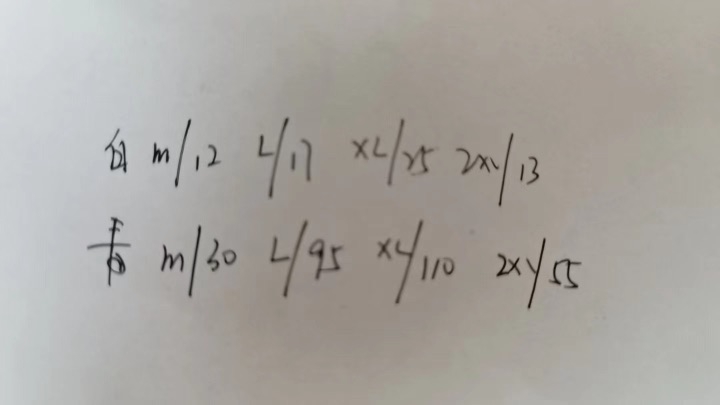 白 m/12 L/17 XL/25 2XL/13
m/30 L/95 XL/110 2XL/55